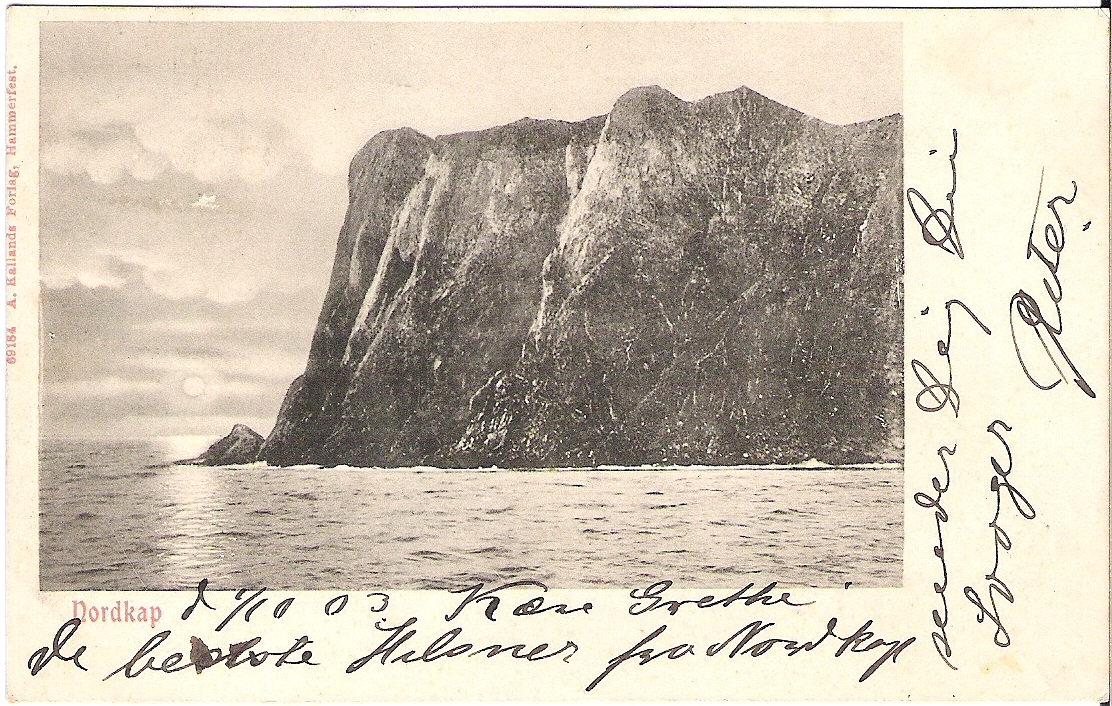 69184 A. Kallands Forlag, Hammerfest.
Nordkap
d 4/10 03. Kære Grethe
De bedste Hilsner fra Nordkap
sender Dig Din
Svoger
Peter